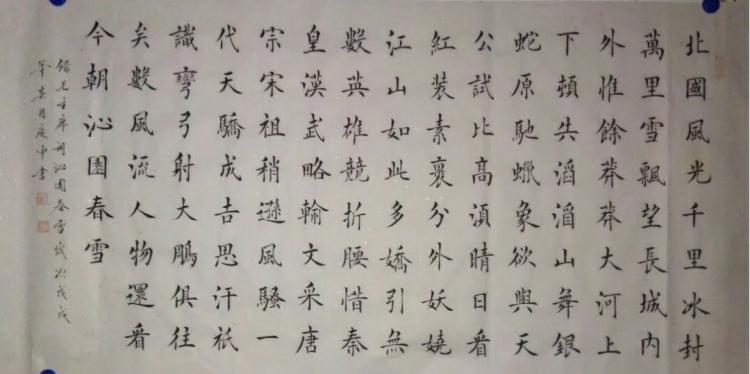 北國風光千里冰封
萬里雪飄望長城内
外惟餘莽莽大河上
下頓失滔滔山舞銀
蛇原馳蠟象欲與天
公試比高須晴日看
紅裝素裹分外妖嬈
江山如此多嬌引無
數英雄競折腰惜秦
皇漢武略輸文采唐
宗宋祖稍遜風騷一
代天驕成吉思汗衹
識彎弓射大鵰俱往
矣數風流人物還看
今朝沁園春雪
錄毛主席詞沁園春雪歲次戊戌
年月慶中書